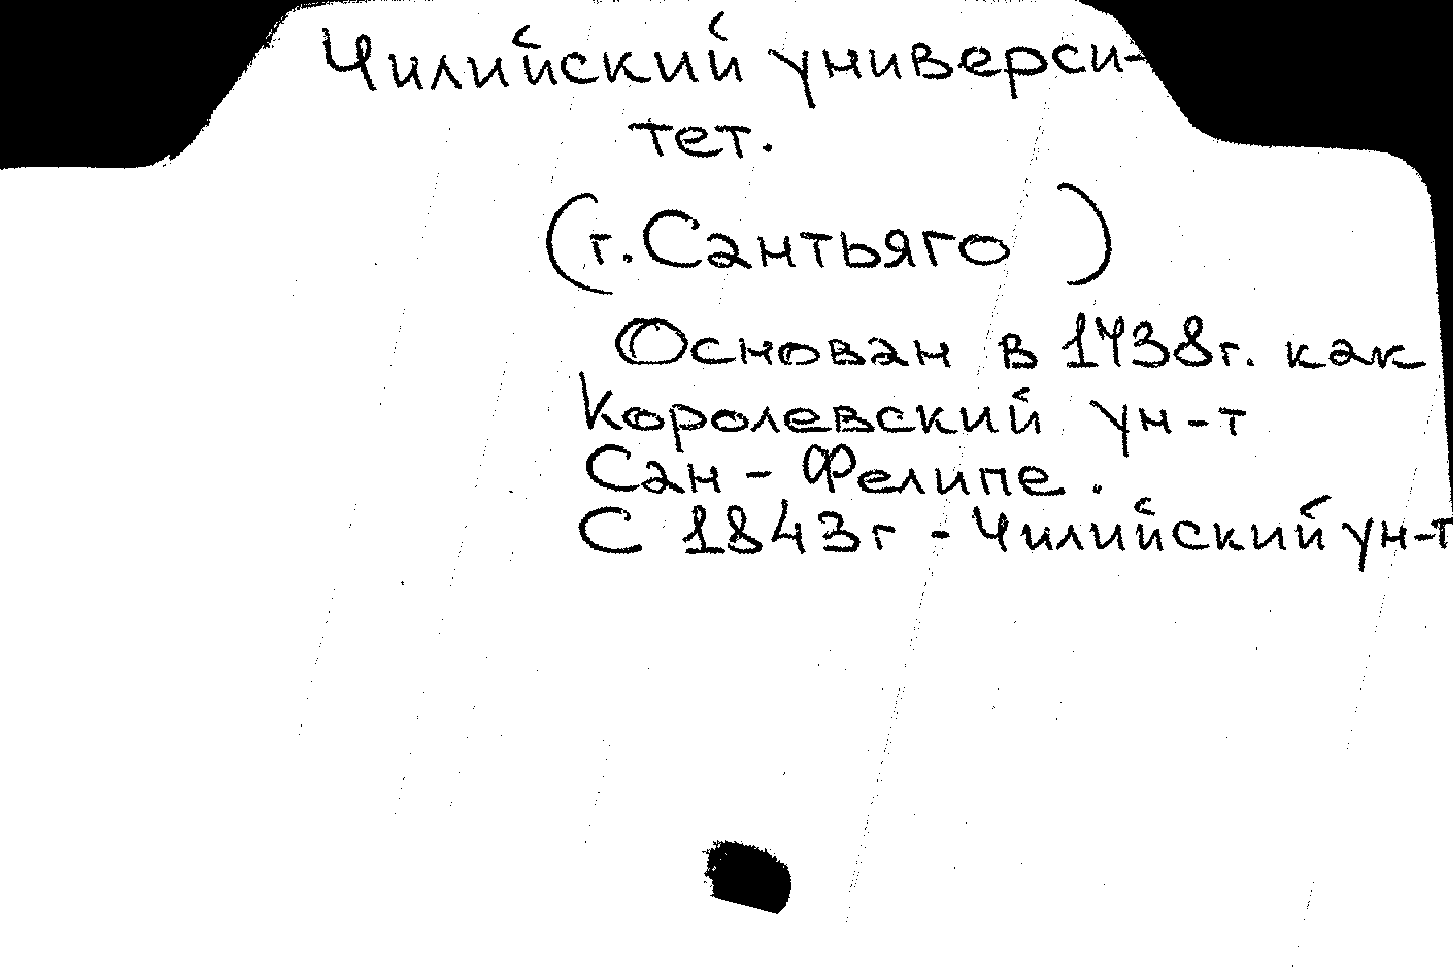 Чилийский универси-
тет.
(г. Сантьяго )
Основан в 1738г. как
Королевский ун-т
Сан - Фелипе.
С 1843г - Чилийский ун-т